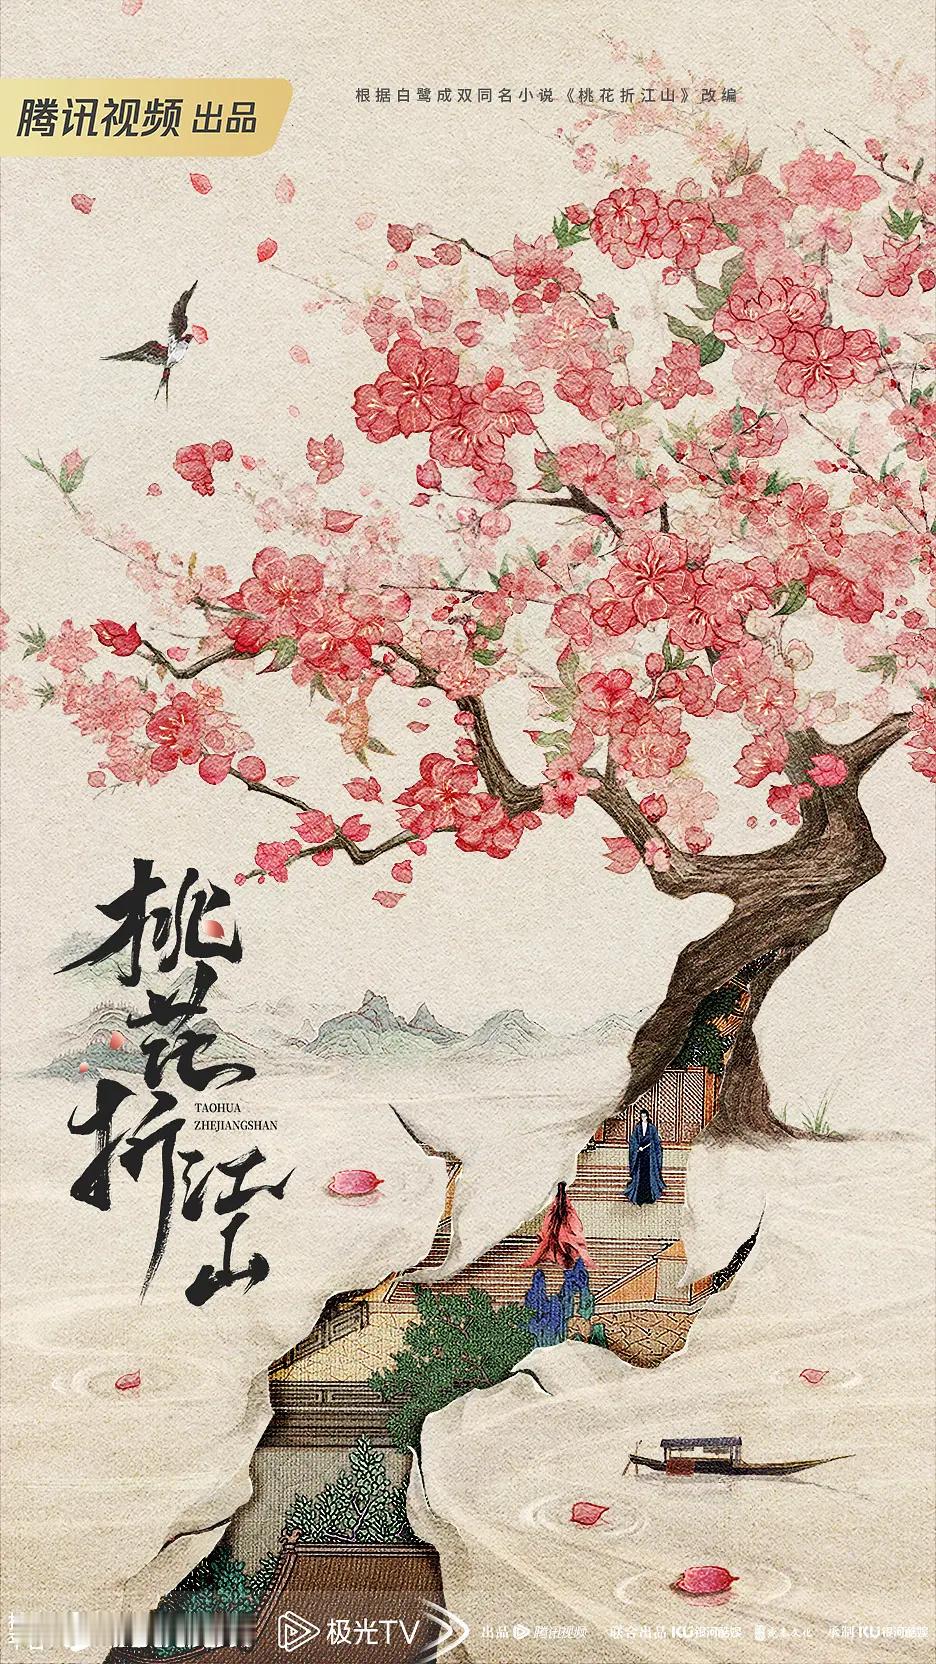 腾讯视频 出品
根据白鹭成双同名小说《桃花折江山》改编
桃花折江山
TAOHUA
ZHEJIANGSHAN
极光TV 出品 腾讯视频 联合出品 KU银河酷娱 承制 KU银河酷娱